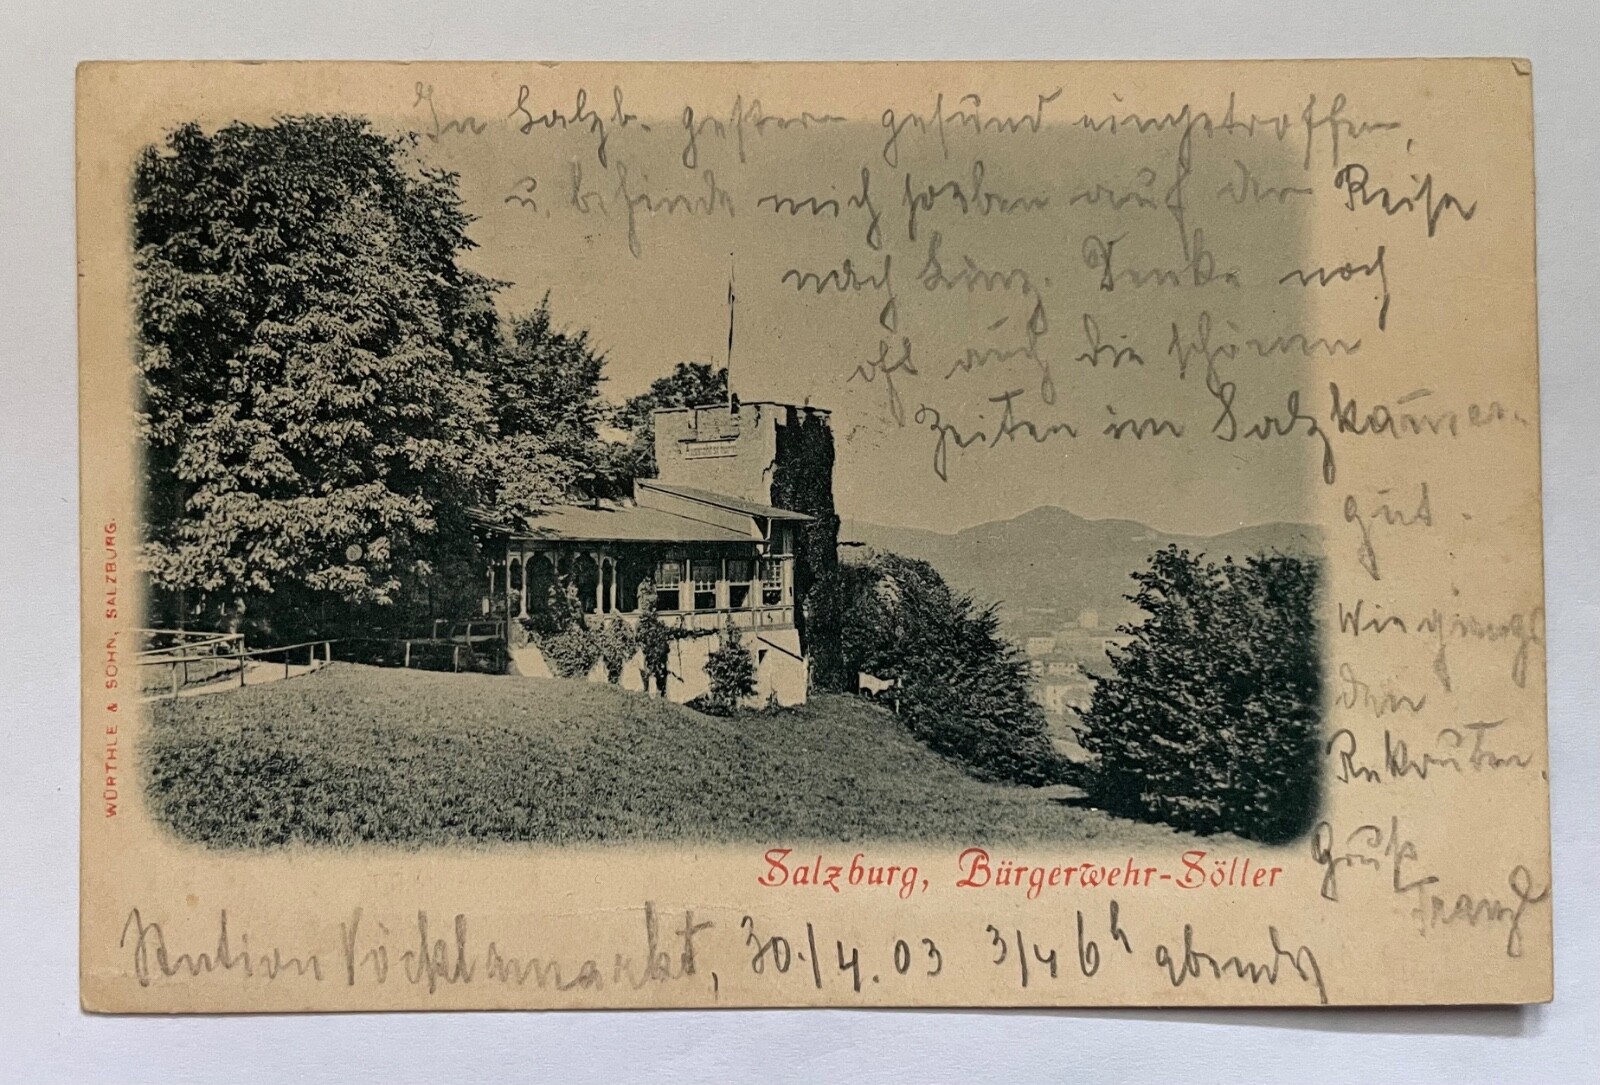 In Salzb. gestern gesund eingetroffen,
u. befinde mich soeben auf der Reise
nach Linz. Denke noch
oft auf die schönen
Zeiten im Salzkammer-
gut.
Wie giengs
den
Rekruten.
Gruß
Franz
WÜRTHLE & SOHN, SALZBURG.
Salzburg, Bürgerwehr-Söller
Station Vöcklamarkt, 30./4.03 3/4 6h abends